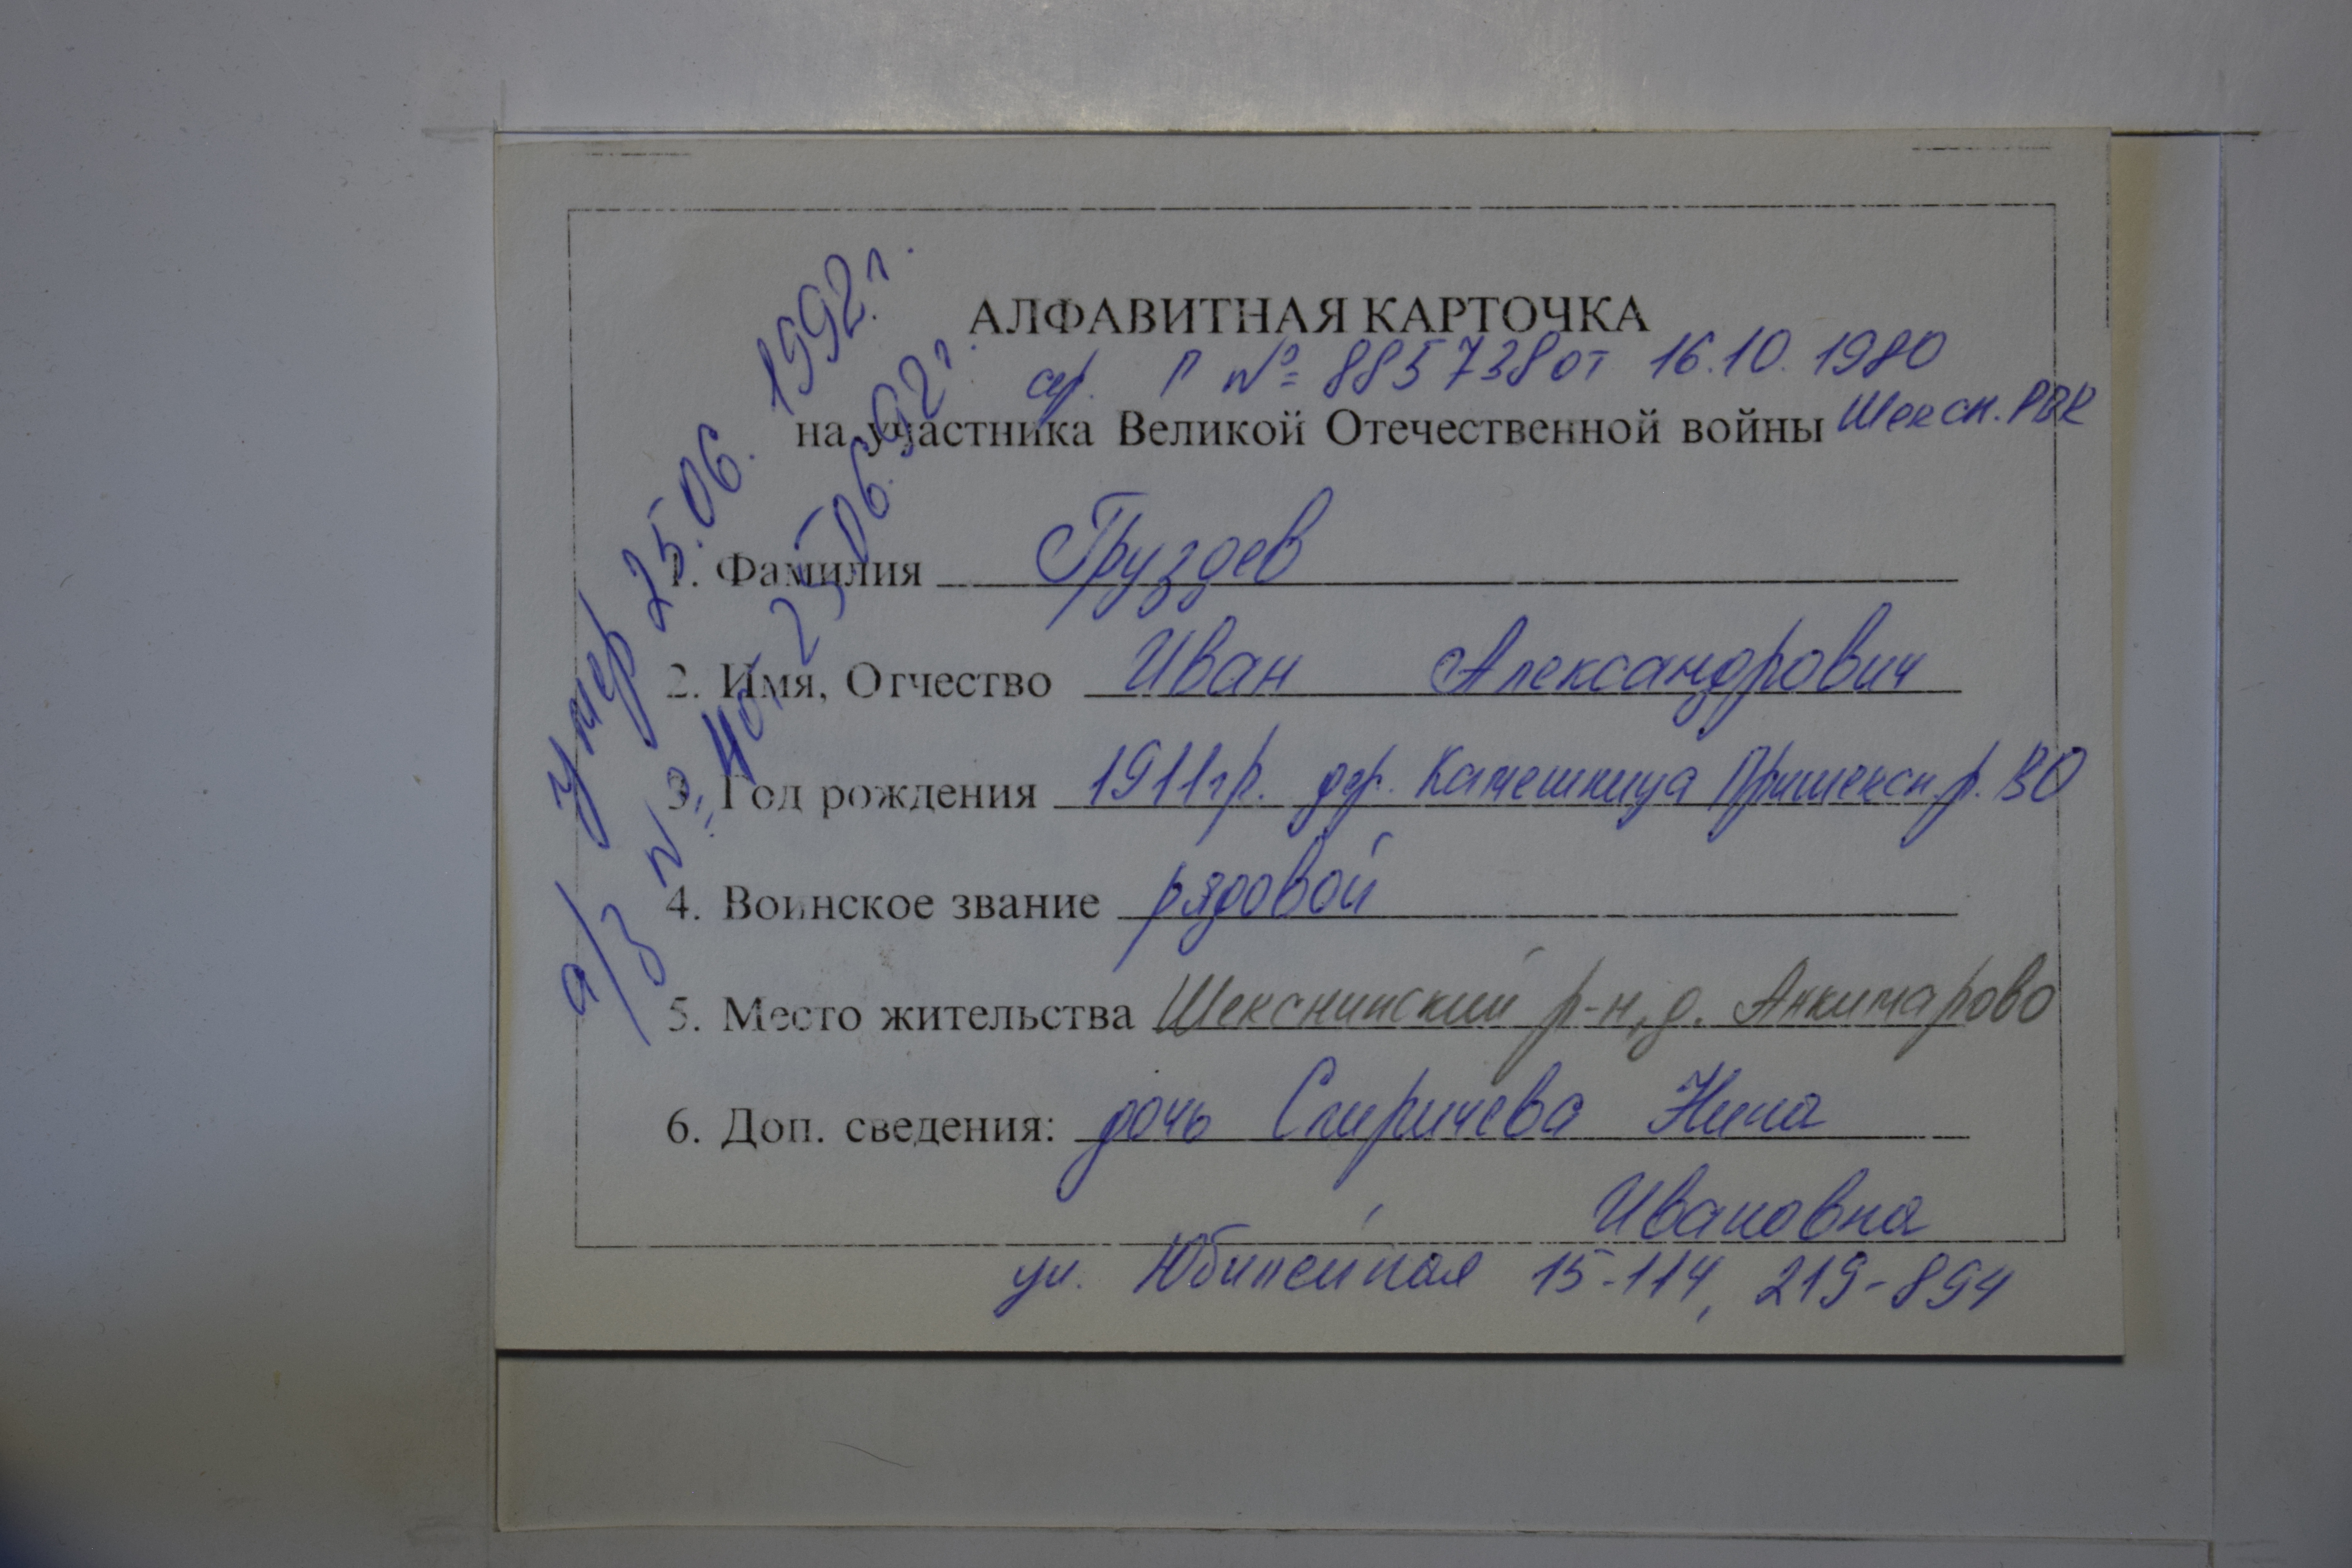 АЛФАВИТНАЯ КАРТОЧКА
сер. П № 885738 от 16.10.1980
на участника Великой Отечественной войны Шексн. РВК
1. Фамилия Груздев
2. Имя, Отчество Иван Александрович
3. Год рождения 1911 г.р. дер. Камешница Пришексн. р. ВО
4. Воинское звание рядовой
5. Место жительства Шекснинский р-н, д. Анкимарово
6. Доп. сведения: дочь Спиричева Нина
Ивановна
ул. Юбилейная 15-114, 219-894
умер 25.06.1992 г.
а/з № 25.06.92 г.